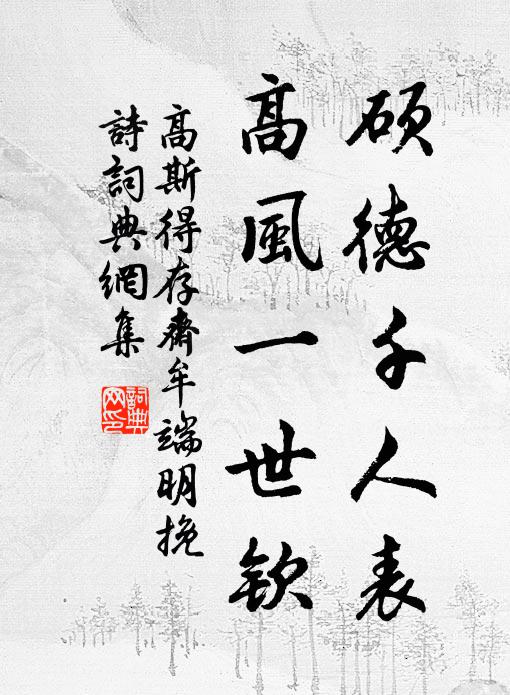 硕德千人表
高風一世欽
高斯得存齋牟端明挽
詩詞典網集
詞典网印